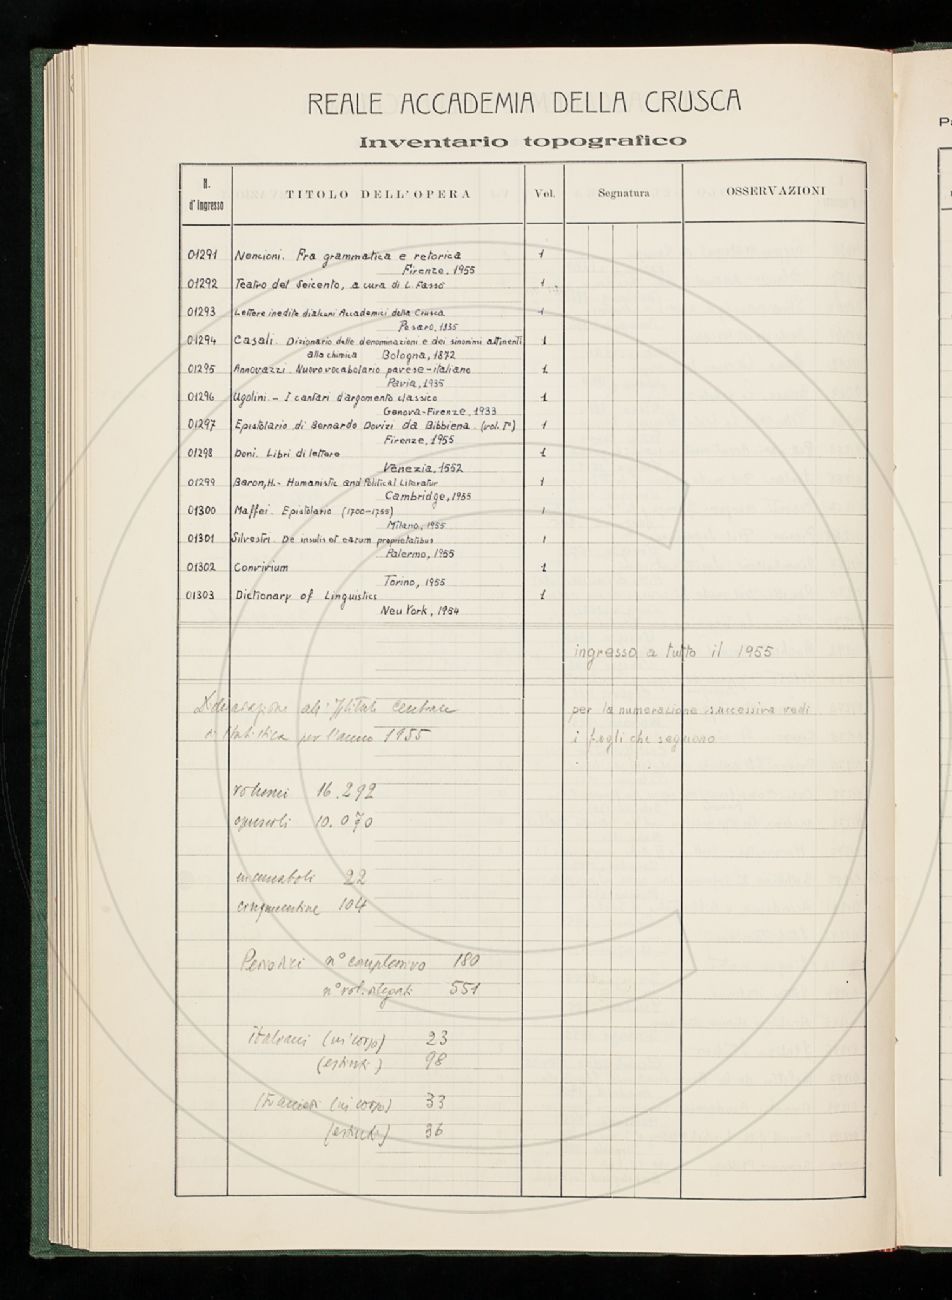 REALE ACCADEMIA DELLA CRUSCA
Inventario topografico
N. d'Ingresso TITOLO DELL'OPERA Vol. Segnatura OSSERVAZIONI
01291 Nencioni. Fra grammatica e retorica 1
Firenze, 1955
01292 Teatro del Seicento, a cura di L. Fassò 1
01293 Lettere inedite di alcuni Accademici della Crusca 1
Pesaro, 1835
01294 Casali. Dizionario delle denominazioni e dei sinonimi attinenti 1
alla chimica Bologna, 1872
01295 Annovazzi. Nuovo vocabolario pavese-italiano 1
Pavia, 1935
01296 Ugolini. - I cantari d'argomento classico 1
Genova-Firenze, 1933
01297 Epistolario di Bernardo Dovizi da Bibbiena (vol. I°) 1
Firenze, 1955
01298 Doni. Libri di lettere 1
Venezia, 1552
01299 Baron, H. - Humanistic and Political Literatur 1
Cambridge, 1955
01300 Maffei. Epistolario (1700-1755) 1
Milano, 1955
01301 Silvestri. De insulis et earum proprietatibus 1
Palermo, 1955
01302 Convivium 1
Torino, 1955
01303 Dictionary of Linguistics 1
New York, 1954
ingresso a tutto il 1955
Dichiarazione all'Istituto Centrale per la numerazione successiva vedi
di Statistica per l'anno 1955 i fogli che seguono
volumi 16.292
opuscoli 10.070
incunaboli 22
cinquecentine 104
Periodici n° complessivo 180
n° vol. rilegati 551
italiani (in corso) 23
(estinti) 98
stranieri (in corso) 33
(estinti) 36